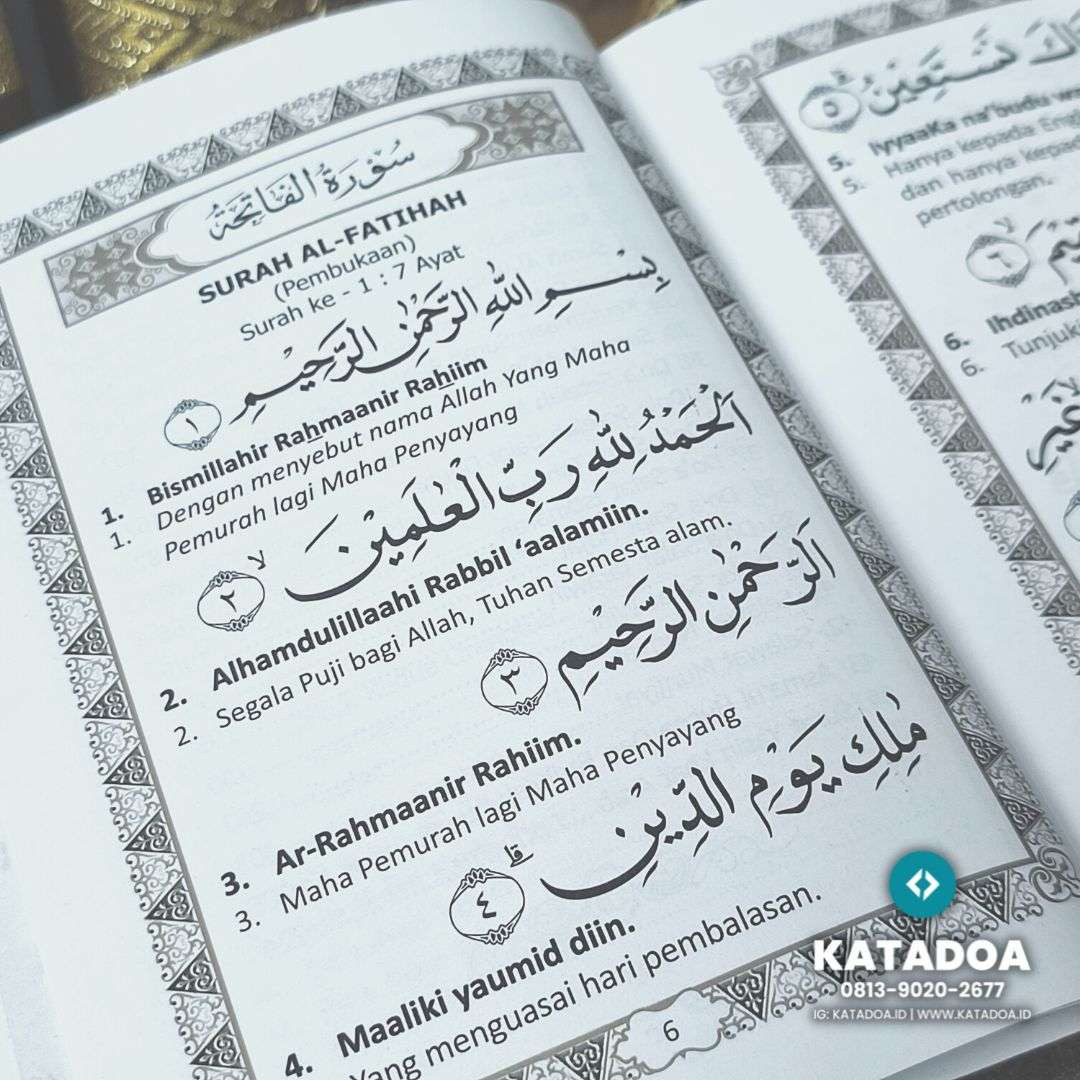 سُوْرَةُ الْفَاتِحَةُ
SURAH AL-FATIHAH
(Pembukaan)
Surah ke - 1 : 7 Ayat
بِسْمِ اللهِ الرَّحْمٰنِ الرَّحِيْمِ ١
1. Bismillahir Rahmaanir Rahiim
1. Dengan menyebut nama Allah Yang Maha
Pemurah lagi Maha Penyayang
اَلْحَمْدُ لِلّٰهِ رَبِّ الْعٰلَمِيْنَ ٢ لا
2. Alhamdulillaahi Rabbil ‘aalamiin.
2. Segala Puji bagi Allah, Tuhan Semesta alam.
اَلرَّحْمٰنِ الرَّحِيْمِ ٣
3. Ar-Rahmaanir Rahiim.
3. Maha Pemurah lagi Maha Penyayang
مٰلِكِ يَوْمِ الدِّيْنِ ٤ قلى
4. Maaliki yaumid diin.
Yang menguasai hari pembalasan.
6
نَسْتَعِيْنُ ٥
5. IyyaaKa na'budu
5. Hanya kepada
dan hanya kepada
pertolongan.
٦
6.
6.
غَيْرِ
KATADOA
0813-9020-2677
IG: KATADOA.ID | WWW.KATADOA.ID